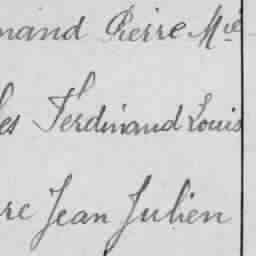 nand Pierre Mie
les Ferdinand Louis
re Jean Julien